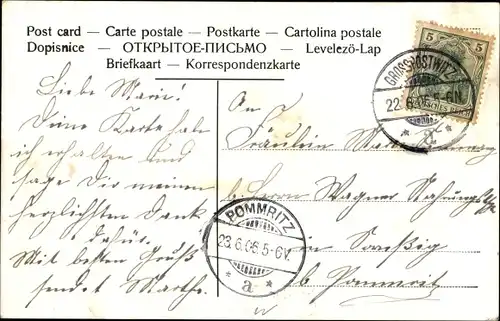 Post card — Carte postale — Postkarte — Cartolina postale
Dopisnice — ОТКРЫТОЕ-ПИСЬМО — Levelező-Lap
Briefkaart — Korrespondenzkarte
5 5
DEUTSCHES REICH
GROSSPOSTWITZ
22.6.06.5-6N.
* a *
Liebe Marie!
Deine Karte hab
ich erhalten und
sage Dir meinen
herzlichsten Dank
dafür.
Mit besten Gruß
sendet Martha.
An
Fräulein
b. Herrn Wagner
in
b. Pommritz
POMMRITZ
23.6.06.5-6V.
* a *